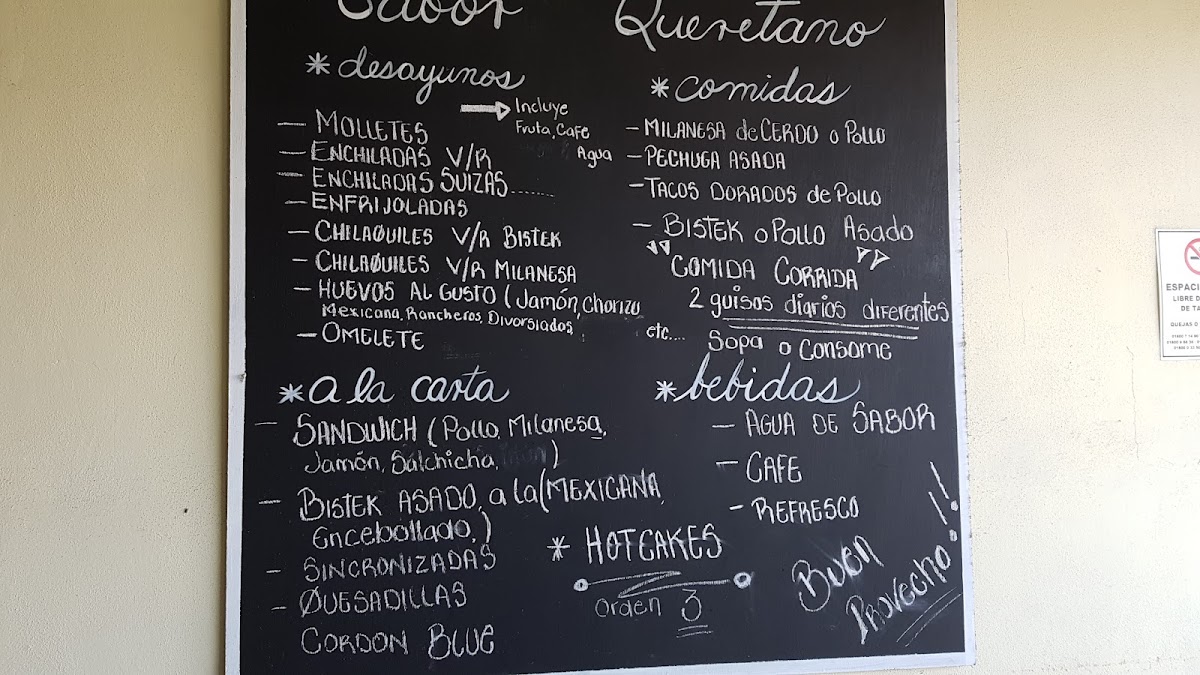 Sabor Queretano
*desayunos
→ Incluye
Fruta, Cafe
Agua
— MOLLETES
— ENCHILADAS V/R
— ENCHILADAS SUIZAS........
— ENFRIJOLADAS
— CHILAQUILES V/R BISTEK
— CHILAQUILES V/R MILANESA
— HUEVOS AL GUSTO (Jamón, Chorizo
Mexicana, Rancheros, Divorsiados,
etc....
— OMELETE
*a la carta
— SANDWICH (Pollo, Milanesa,
Jamón, Salchicha, )
— BISTEK ASADO, a la (MEXICANA,
Encebollado,)
— SINCRONIZADAS
— QUESADILLAS
CORDON BLUE
*comidas
— MILANESA de CERDO o Pollo
— PECHUGA ASADA
— TACOS DORADOS de Pollo
— BISTEK o Pollo Asado
"COMIDA CORRIDA"
2 guisos diarios diferentes
Sopa o Consome
*bebidas
— AGUA DE SABOR
— CAFE
— REFRESCO
* HOTCAKES
Orden 3
Buen
Provecho!!
ESPACI
LIBRE D
DE TA
QUEJAS O